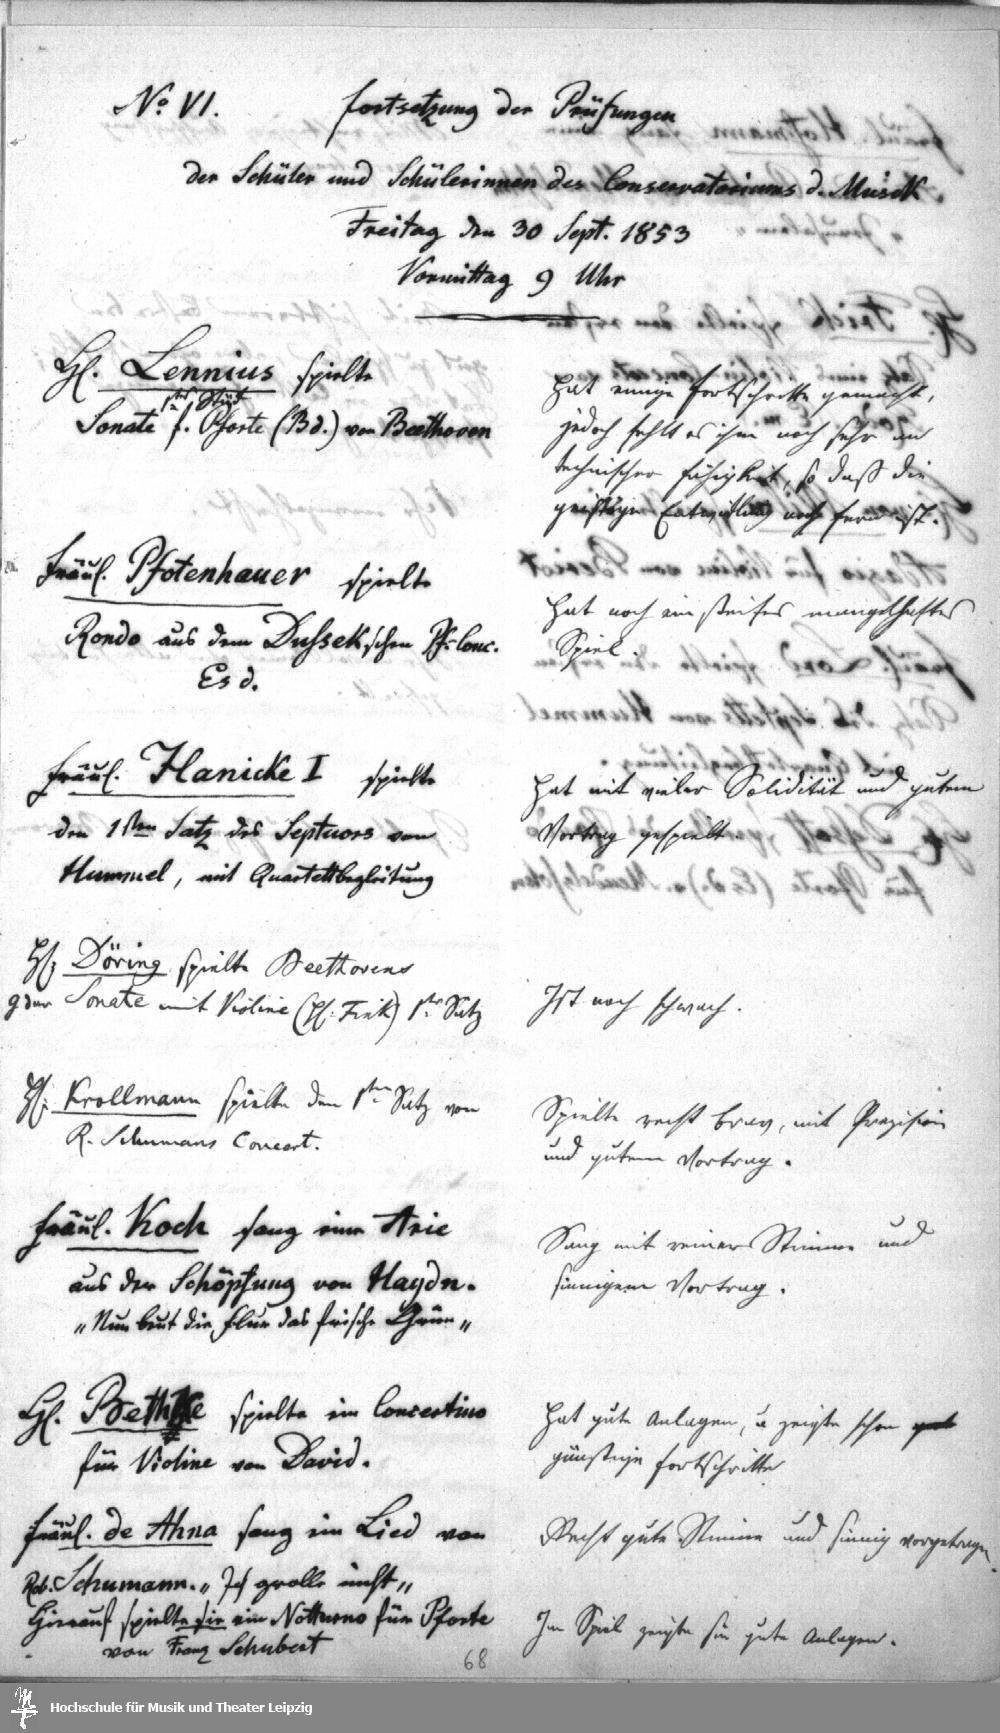 No VI. Fortsetzung der Prüfungen
der Schüler und Schülerinnen des Conservatoriums d. Musik
Freitag den 30 Sept. 1853
Vormittag 9 Uhr
H. Lennius spielte
1ster Stück
Sonate f. Pforte (Bd.) von Beethoven
hat einige Fortschritte gemacht,
jedoch fehlt es ihm noch sehr an
technischer Fähigkeit, so daß die
geistige Entwicklung noch fern ist.
Fräul. Pfotenhauer spielte
Rondo aus dem Dussekschen Pf. Conc.
Es d.
Hat noch ein steifes mangelhaftes
Spiel.
Fräul. Hanicke I spielte
den 1sten Satz des Septuors von
Hummel, mit Quartettbegleitung
Hat mit vieler Solidität und gutem
Vortrag gespielt.
H. Döring spielte Beethovens
g dur Sonate mit Violine (H. Fink) 1ter Satz
Ist noch schwach.
H. Krollmann spielte den 1sten Satz von
R. Schumans Concert.
Spielte recht brav, mit Präzision
und gutem Vortrag.
Fräul. Koch sang eine Arie
aus der Schöpfung von Haydn.
"Nun beut die Flur das frische Grün"
Sang mit reiner Stimme und
sinnigem Vortrag.
H. Bethke spielte ein Concertino
für Violine von David.
Hat gute Anlagen, u zeigte schon
günstige Fortschritte
Fräul. de Ahna sang ein Lied von
Rob. Schumann. "Ich grolle nicht"
Hierauf spielte sie ein Notturno für Pforte
von Franz Schubert
Recht gute Stimme und sinnig vorgetragen.
Im Spiel zeigte sie gute Anlagen.
68
Hochschule für Musik und Theater Leipzig